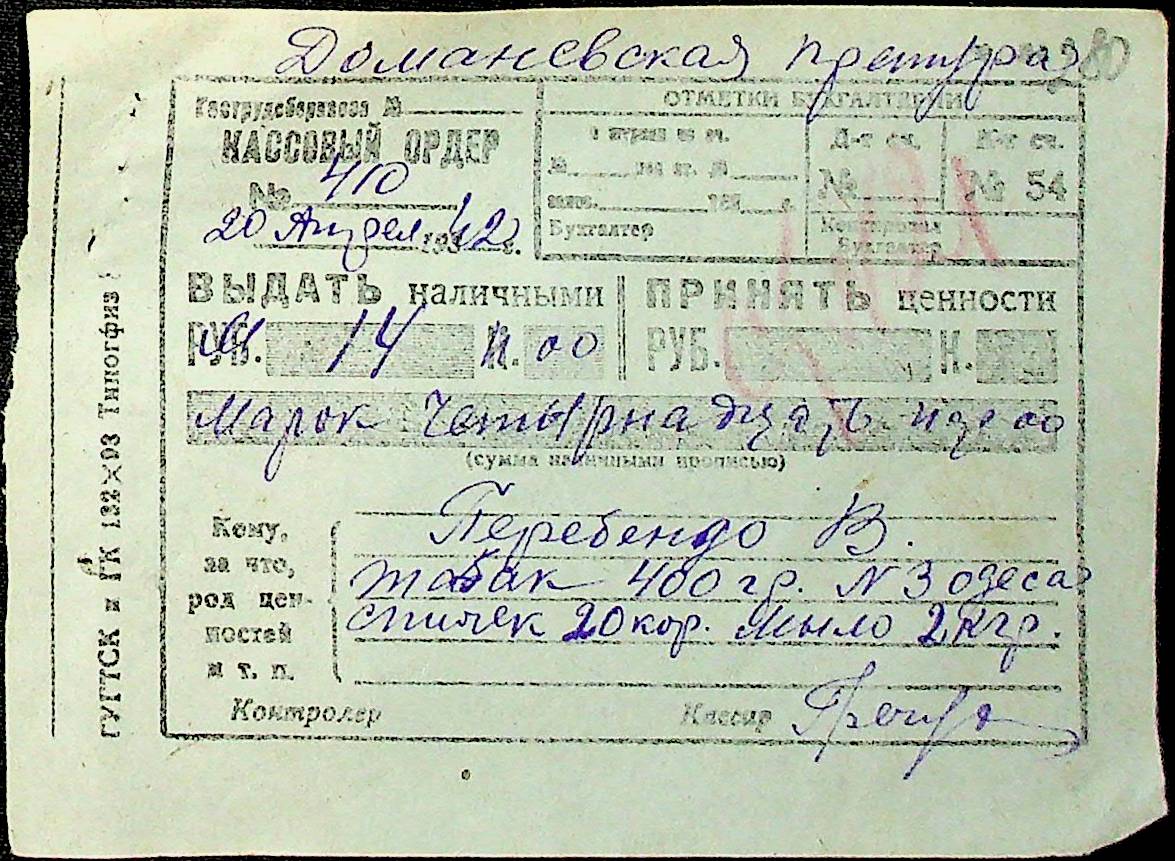 Доманевская претура
280
Гострудсберкасса №
КАССОВЫЙ ОРДЕР
№ 410
20 Апрел 193 42 г.
ОТМЕТКИ БУХГАЛТЕРИИ
Бухгалтер
Д-т сч.
№
К-т сч.
№ 54
Контировал
Бухгалтер
ВЫДАТЬ наличными
РУБ. М 14 К. 00
ПРИНЯТЬ ценности
РУБ. К.
Марок Четырнадцать пфе 00
(сумма наличными прописью)
Кому,
за что,
род цен-
ностей
и т. п.
Перебендо В.
табак 400 гр. N 3 одеса
спичек 20 кор. Мыло 2 кгр.
Контролер
Кассир
ГУГТСК и ГК 132×93 Типогфиз